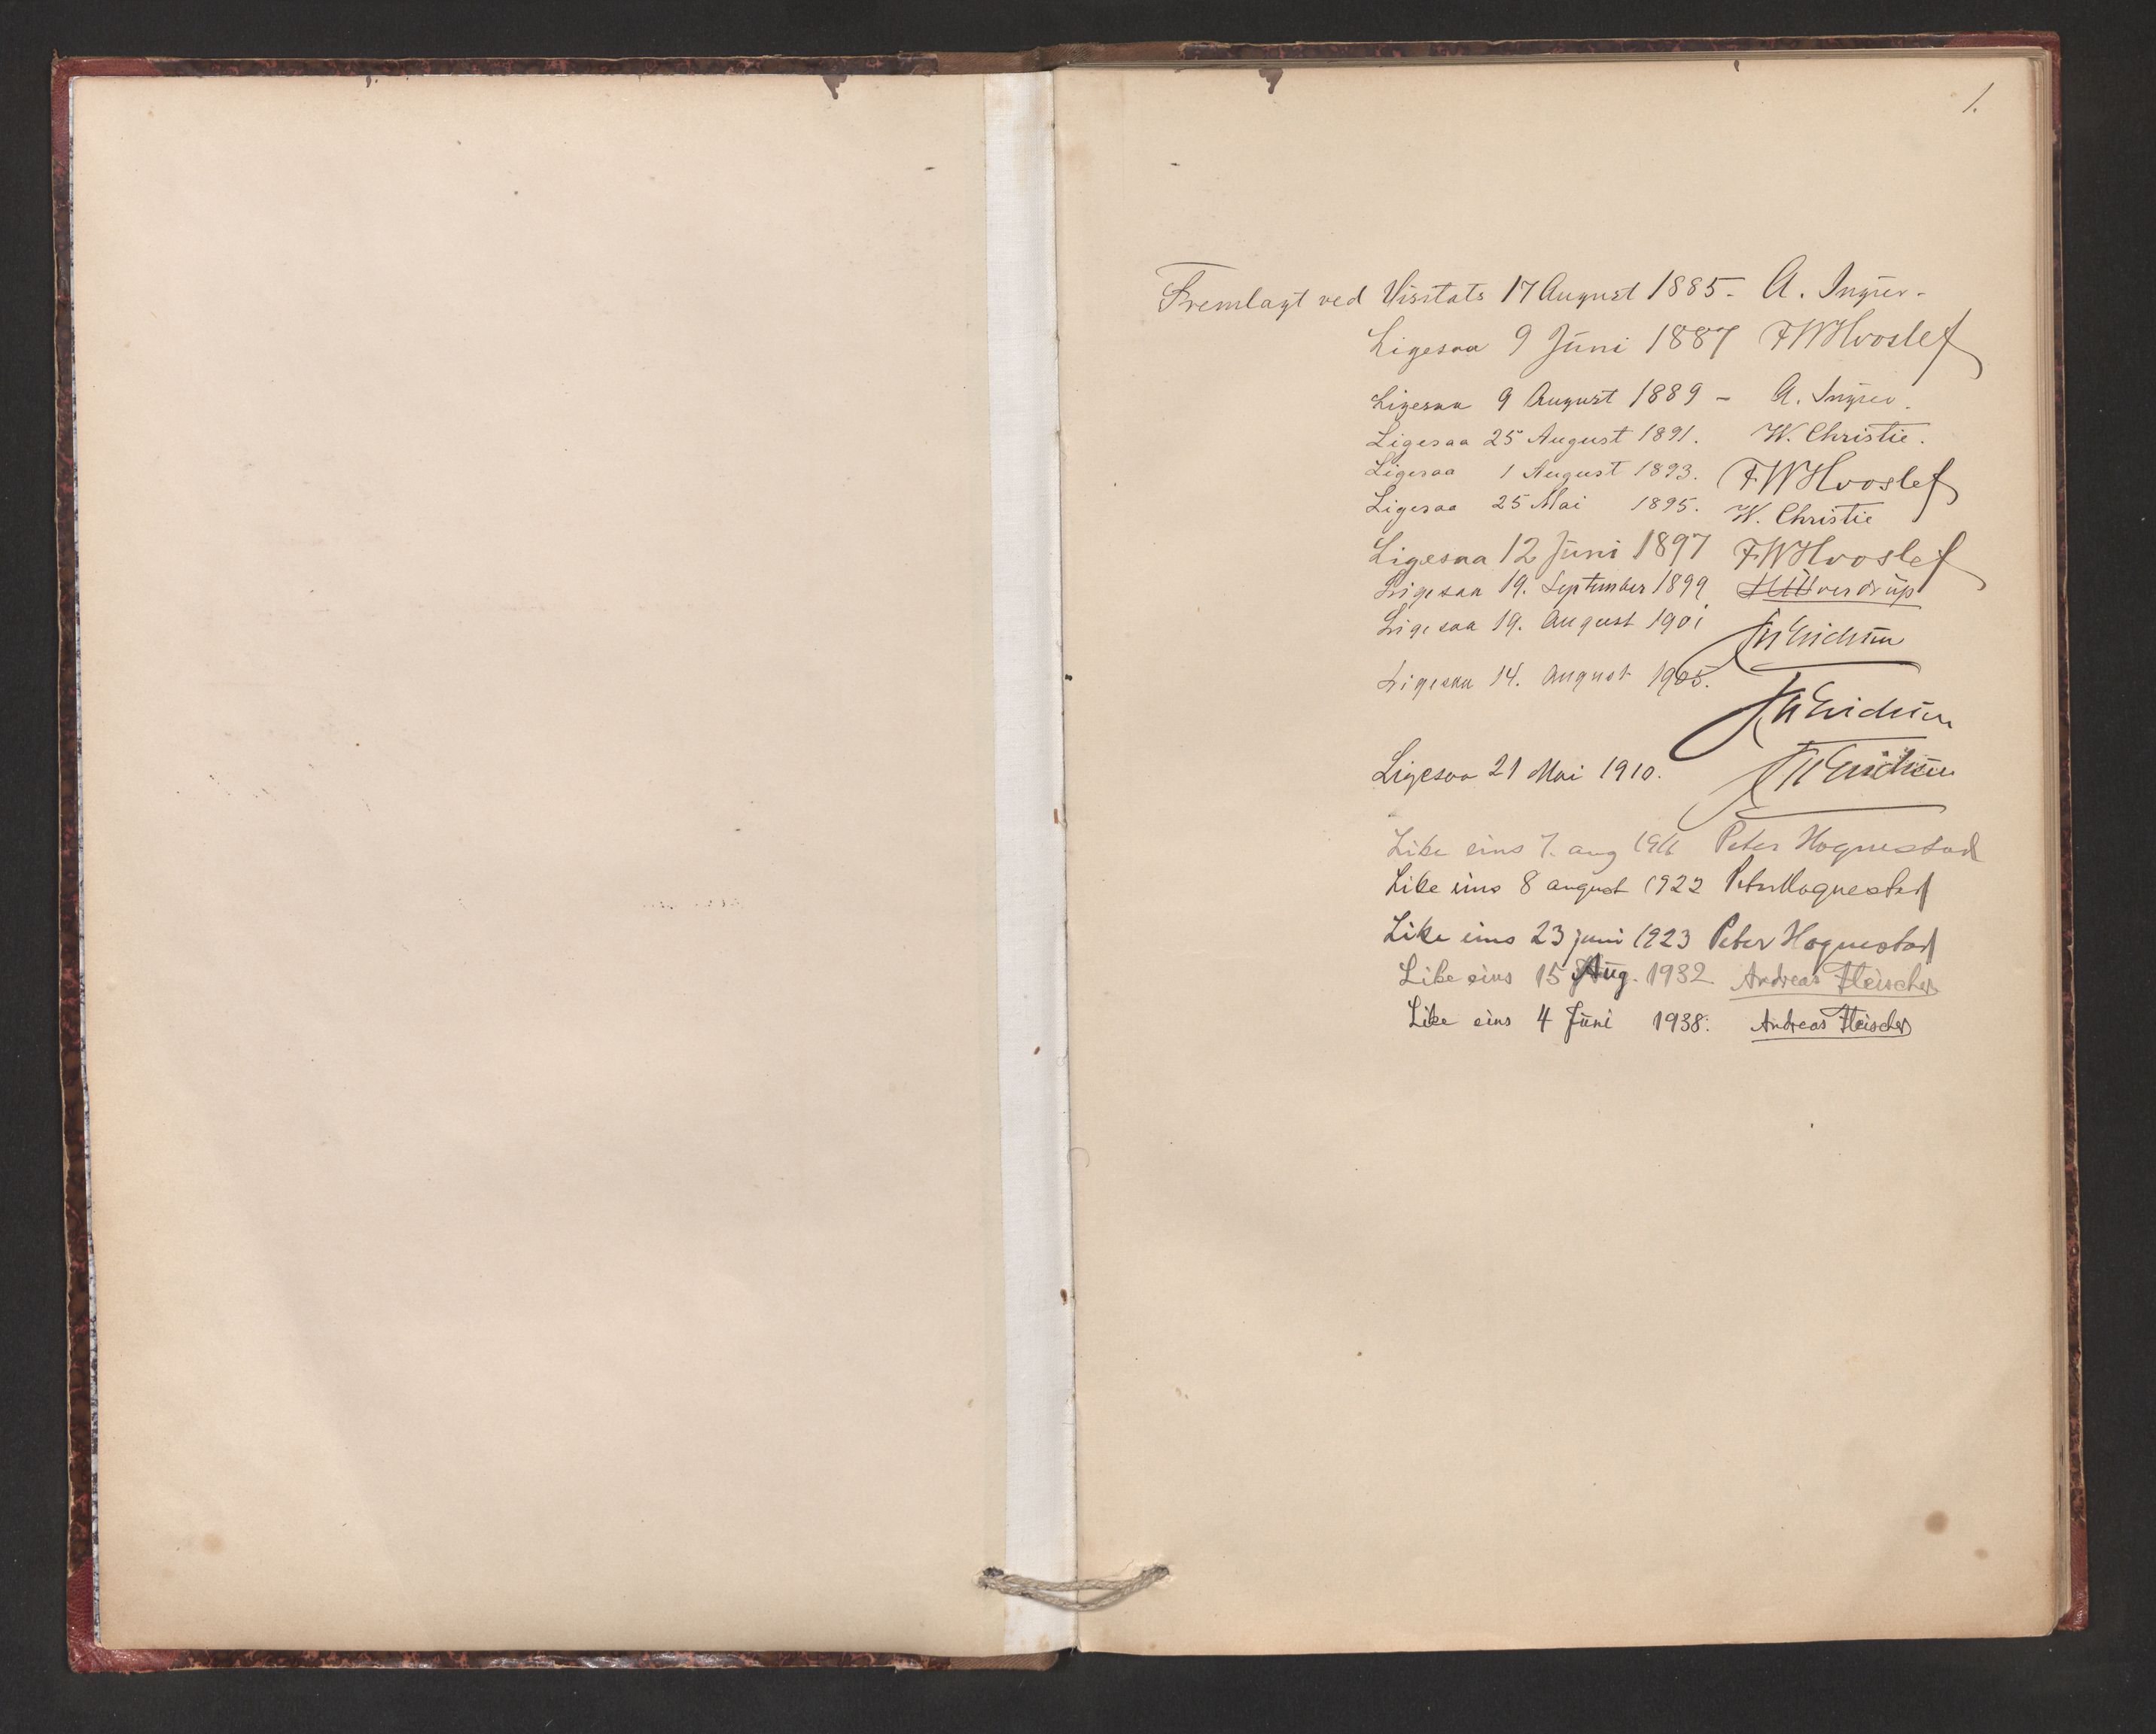 1.
Fremlagt ved Visitats 17 August 1885 - A. Ingier -
Ligesaa 9 Juni 1887 FWHvoslef
Ligesaa 9 August 1889 - A. Ingier.
Ligesaa 25 August 1891. W. Christie.
Ligesaa 1 August 1893. FWHvoslef
Ligesaa 25 Mai 1895. W. Christie
Ligesaa 12 Juni 1897 FWHvoslef
Ligesaa 19. September 1899
Ligesaa 19. August 1901
Ligesaa 14. August 1905.
Ligesaa 21 Mai 1910.
Like eins 7. aug 1916 Peter Hognestad
Like eins 8 august 1922 Peter Hognestad
Like eins 23 juni 1923 Peter Hognestad
Like eins 15 Aug. 1932 Andreas Fleischer
Like eins 4 Juni 1938. Andreas Fleischer